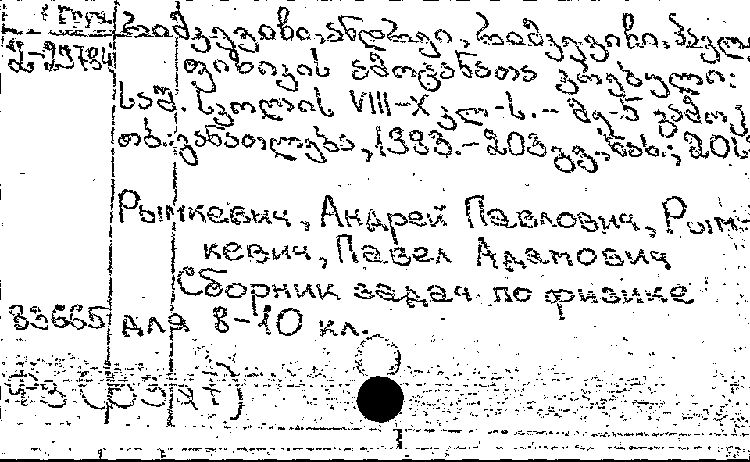 რიმკევიჩი, ანდრეი, რიმკევიჩი, პავლე
2-29784 ფიზიკის ამოცანათა კრებული:
საშ. სკოლის VIII-X კლ-ს.- მე-5 გამოც
თბ.: განათლება, 1983.- 203 გვ.: ნახ.; 20ს
Рымкевич, Андрей Павлович, Рым-
кевич, Павел Адамович
Сборник задач по физике
83665 для 8-10 кл.